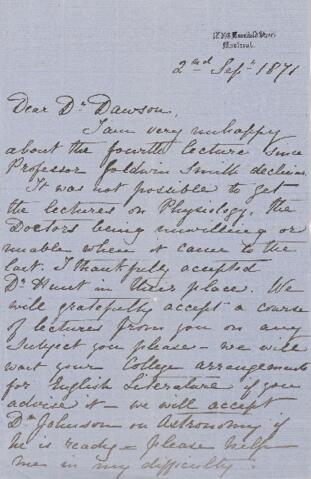 Montreal.
2nd Sept. 1871
Dear Dr. Dawson,
I am very unhappy
about the fourth lecture since
Professor Goldwin Smith declines.
It was not possible to get
the lectures on Physiology, the
Doctors being unwilling or
unable when it came to the
last. I thankfully accepted
Dr. Hunt in their place. We
will gratefully accept a course
of lectures from you on any
subject you please - we will
wait your College arrangements
for English Literature if you
advise it - we will accept
Dr. Johnson on Astronomy if
he is ready - please help
me in my difficulty.